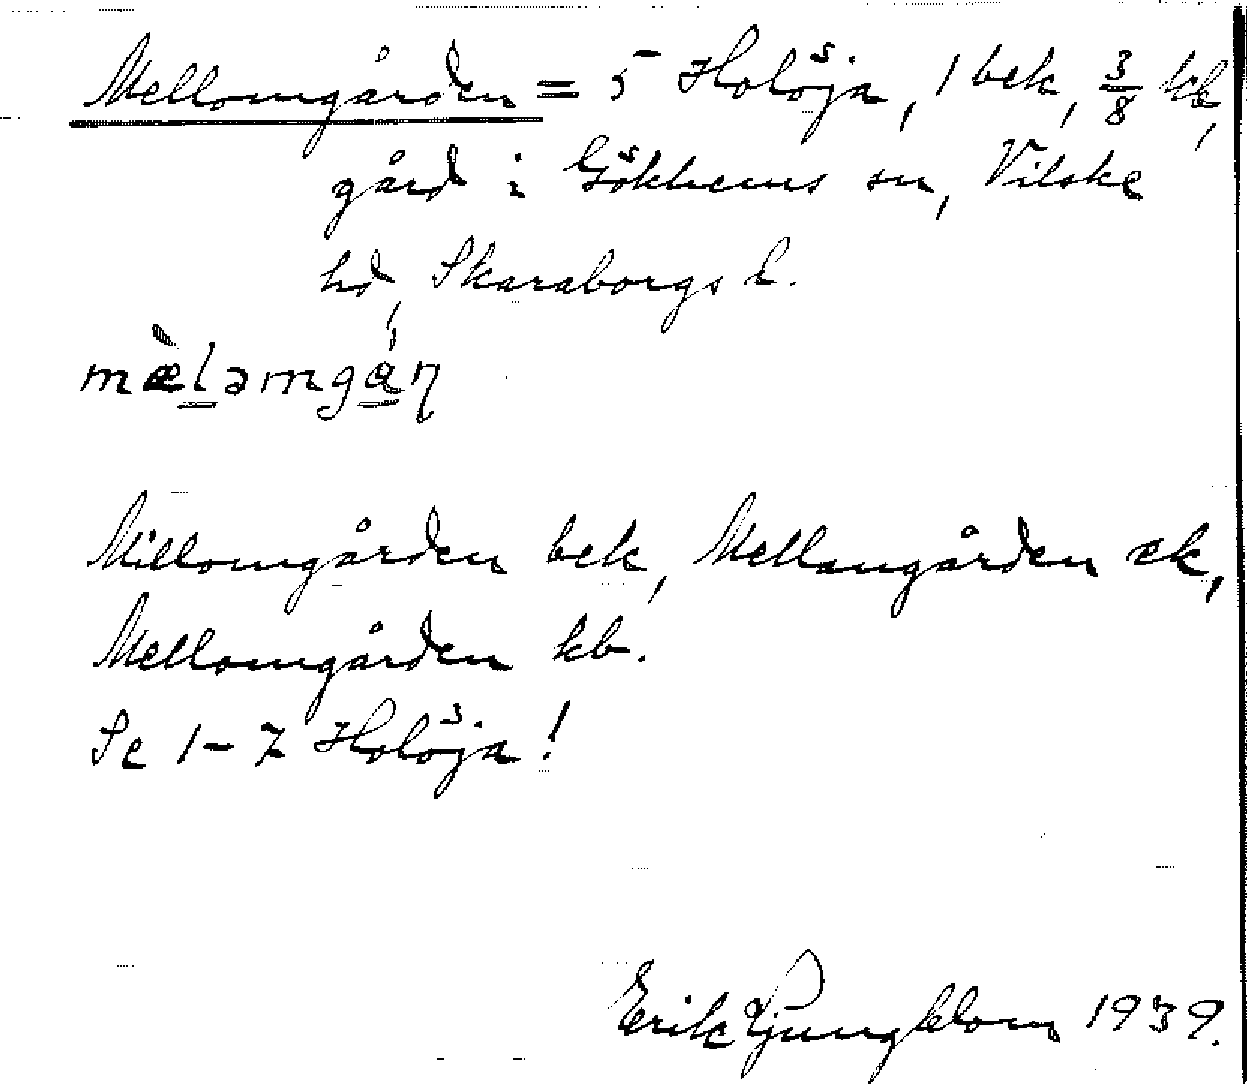 Mellomgården = 5 Holöja, 1 bek, 3/8 kb,
gård i Gökhems sn, Vilske
hd, Skaraborgs l.
mæ̀l̲əmgá̲ɳ
Millomgården bek, Mellangården ek,
Mellomgården kb.
Se 1-7 Holöja!
Erik Ljungblom 1939.